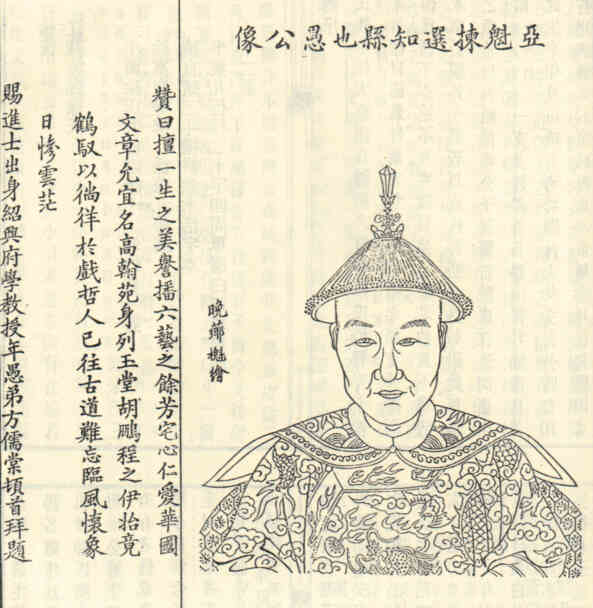 亞魁揀選知縣也愚公像
晚蓀樾繪
贊曰擅一生之美譽播六藝之餘芳宅心仁愛華國
文章允宜名高翰苑身列玉堂胡鵬程之伊始竟
鶴馭以徜徉於戲哲人已往古道難忘臨風懷象
日慘雲茫
賜進士出身紹興府學教授年愚弟方儒棠頓首拜題